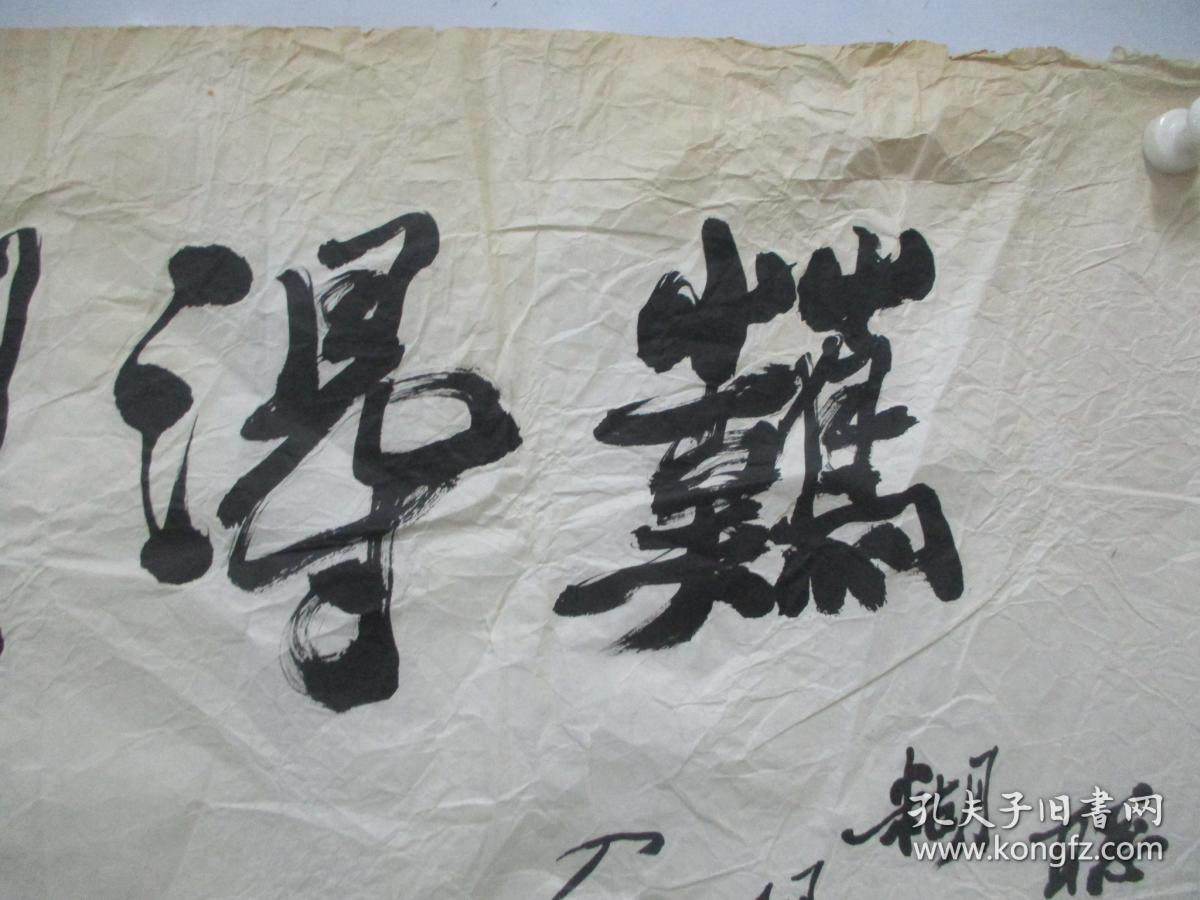 難得
聰
糊
孔夫子旧書网
www.kongfz.com